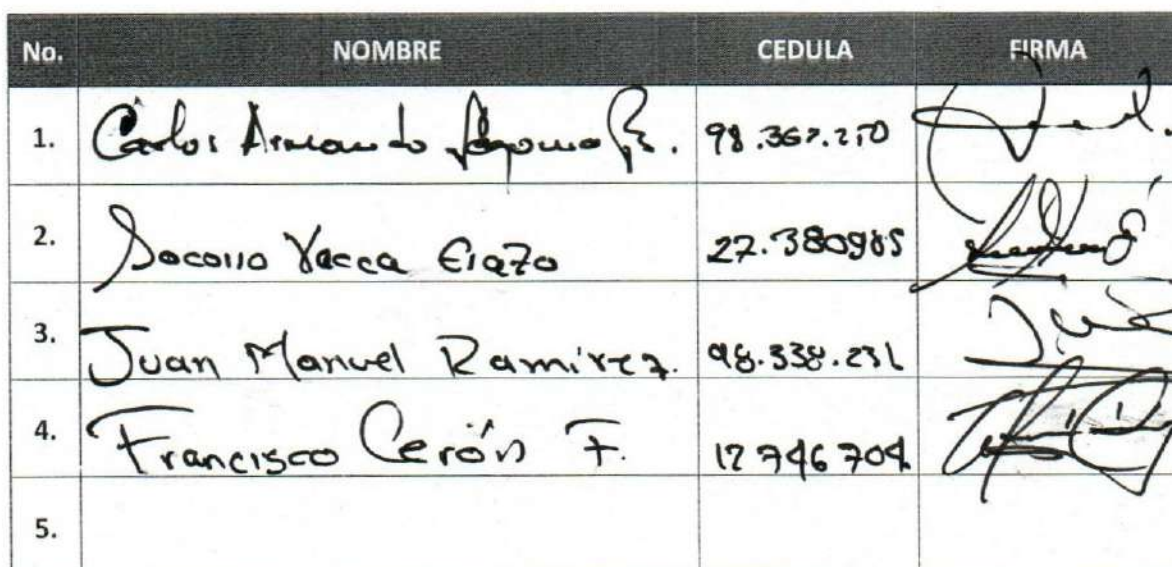 No. NOMBRE CEDULA FIRMA
1. Carlos Armando 98.367.270
2. Socorro Vacca Erazo 27.380985
3. Juan Manuel Ramirez. 98.338.231
4. Francisco Cerón F. 12 746 704
5.